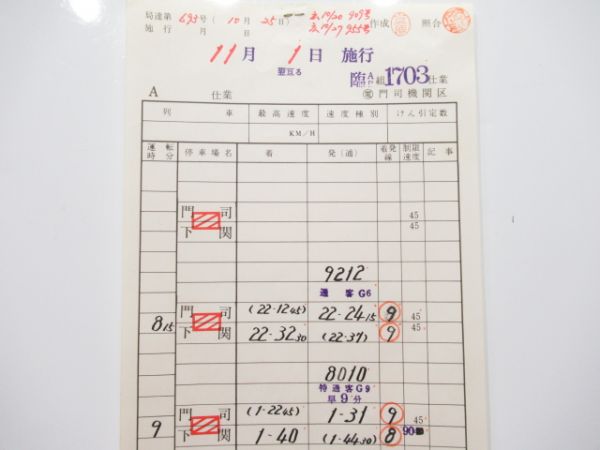 局達第 693号 (10月25日) 10/20 909号 作成 照合
施行 月 日 10/27 955号
11月 1日 施行
翌亘る
臨 A 組 1703 仕業
A 仕業 門司機関区
列車 最高速度 速度種別 けん引定数
KM/H
運転時分 停車場名 着 発(通) 着発線 制限速度 記事
門司 45
下関 45
9212
通客G6
門司 (22-12 45) 22-24 15 9 45
8 15 下関 22-32 30 (22-37) 9 45
8010
特通客G9
早9分
門司 (1-22 45) 1-31 9 45
9 下関 1-40 (1-44 30) 8 90